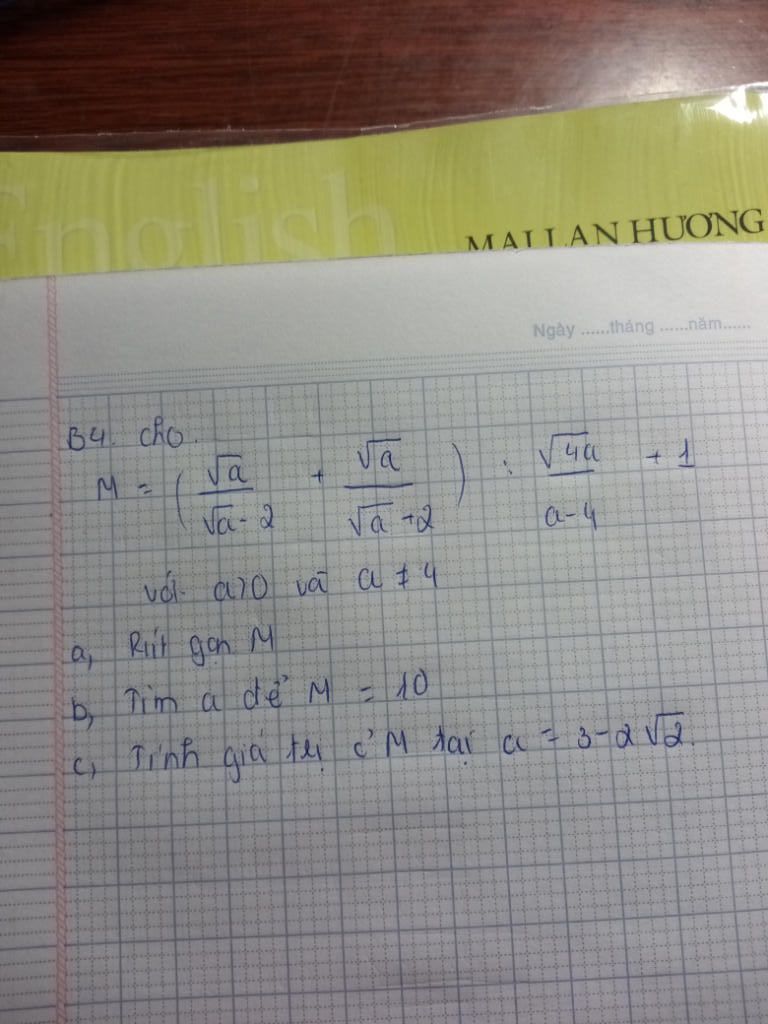 English
MAI LAN HƯƠNG
Ngày ......tháng ......năm......
B4. cho.
M = ( √a / (√a - 2) + √a / (√a + 2) ) : √4a / (a - 4) + 1
với a>0 và a ≠ 4
a, Rút gọn M
b, Tìm a để M = 10
c, Tính giá trị c' M tại a = 3 - 2√2.